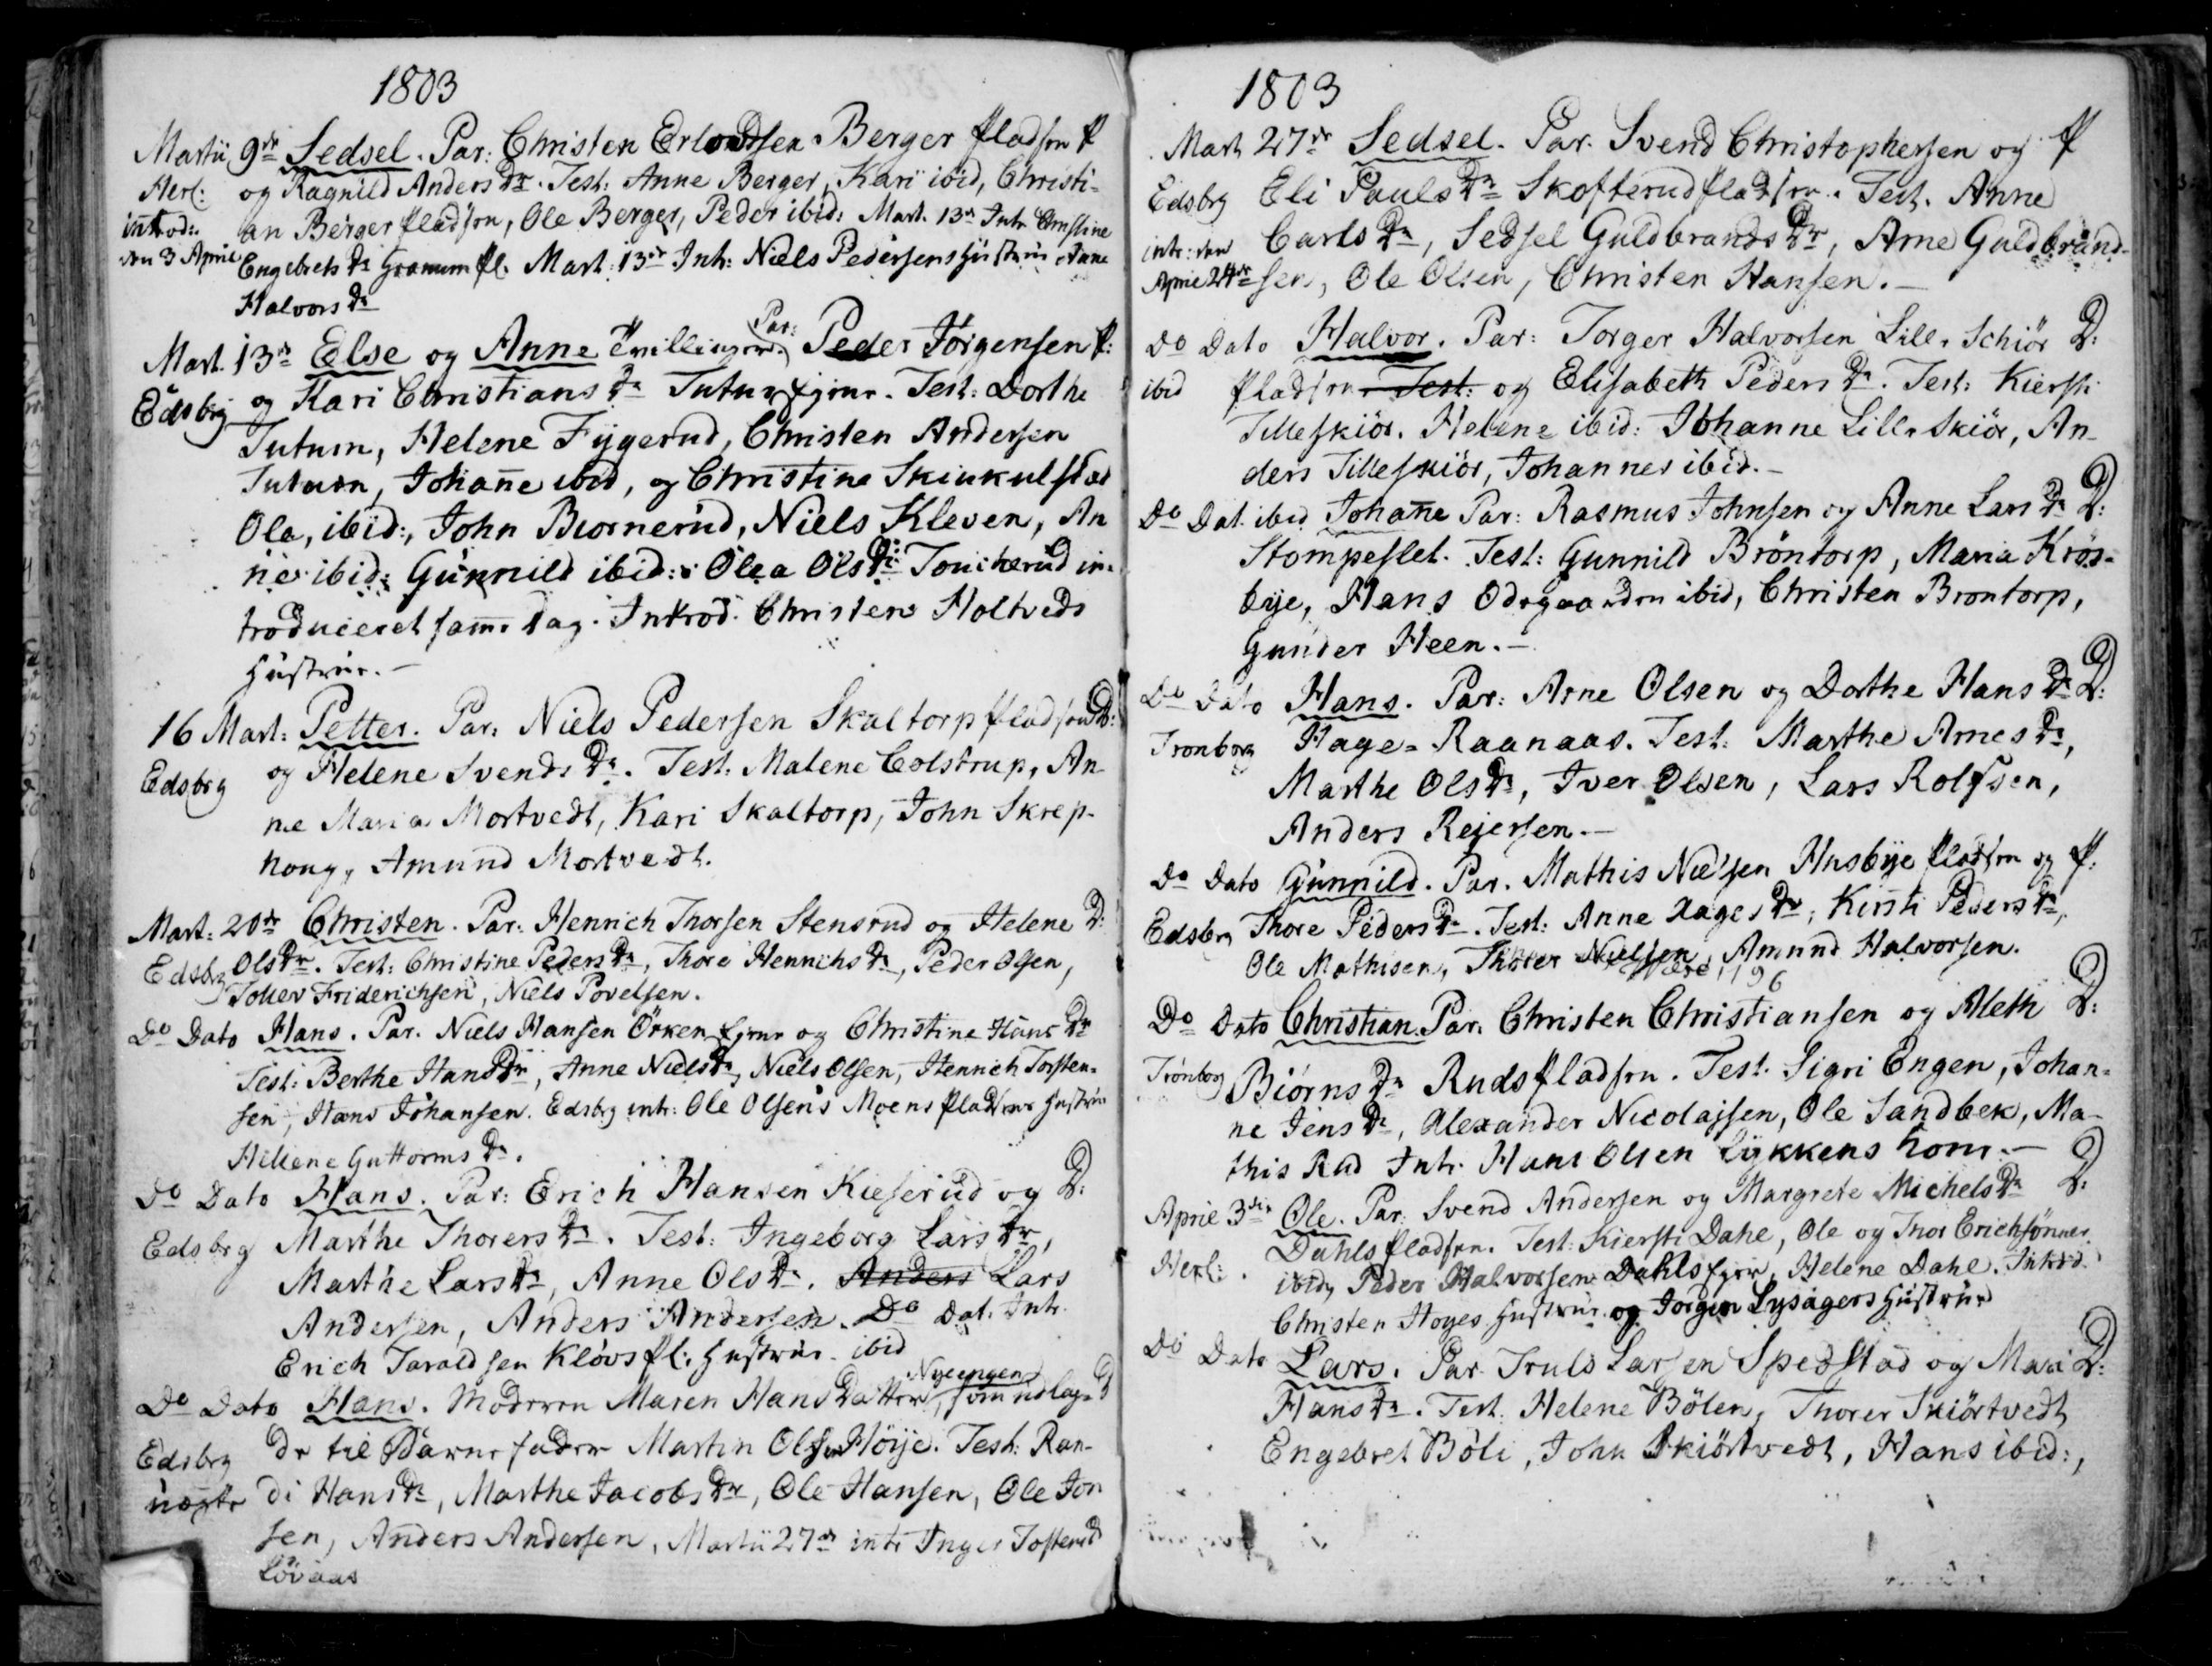 1803
Martii 9de Sedsel. Par: Christen Erlandsen Berger pladsen f
Herl: og Ragnild Anders Dr. Test: Anne Berger, Kari ibid, Christi-
introd: an Berger pladsen, Ole Berger, Peder ibid: Mart. 13de Intr. Christine
den 3 April Engebrets Dr Gramm pl. Mart. 13de Intr: Niels Pedersens Hustrue Anne
Halvors Dr
Mart. 13de Else og Anne Tvillinger. Par: Peder Jörgensen f:
Edsbrg og Kari Christians Dr Tutum Ejeur. Test: Dorthe
Tutum, Helene Fygerud, Christen Andersen
Tutum, Johañe ibid, og Christine Skinkulstad
Ole, ibid:, John Biornerud, Niels Kleven, An
ne ibid: Gunnild ibid: Olea Ols Dr Toucherud in-
troduceret samme dag. Introd. Christen Holtveds
Hustrue.-
16 Mart: Petter. Par: Niels Pedersen Skaltorp pladsen D:
Edsbrg og Helene Svends Dr. Test: Malene Colstrup, An-
ne Maria Mortvedt, Kari Skaltorp, John Skrep-
houg, Amund Mortvedt.
Mart: 20de Christen. Par: Henrich Thorsen Stensrud og Helene D:
Edsbrg Ols Dr. Test: Christine Peders Dr, Thore Henrichs Dr, Peder Olsen,
Tollev Friderichsen, Niels Povelsen.
Do Dato Hans. Par. Niels Hansen Örken Ejeur og Christine Hans Dr
Test: Berthe Hans Dr, Anne Niels Dr, Niels Olsen, Henrich Torsten-
sen, Hans Johansen. Edsbrg intr: Ole Olsens Moens pladsens Hustrue
Hellene Guttorms Dr.
Do Dato Hans. Par: Erich Hansen Kieserud og D:
Edsbrg Marthe Thorers Dr. Test: Ingeborg Lars Dr,
Marthe Lars Dr, Anne Ols Dr. Anders Lars
Andersen, Anders Andersen. Do Dat. Intr.
Erich Taraldsen Klövs pl: Hustrue ibid
Nyeengen
Do Dato Hans. Moderen Maren Hans Datter, som udlag- D
Edsbrg de til Barne fader Martin Olsen Höije. Test: Ran-
uægte di Hans Dr, Marthe Jacobs Dr, Ole Hansen, Ole Jon
sen, Anders Andersen, Martii 27de intr Inger Tostens D
Lövaas
1803
Mart 27de Sedsel. Par. Svend Christophersen og f
Edsbrg Eli Pauls Dr Skofterud pladsen. Test. Anne
intr: den Carls Dr, Sedsel Guldbrands Dr, Arne Guldbrand-
April 24de sen, Ole Olsen, Christen Hansen.-
Do Dato Halvor. Par: Torger Halvorsen Lille Schiör D:
ibid pladsen Test: og Elisabeth Peders Dr. Test: Kiersti
Lilleskiör. Helene ibid: Johanne Lille Skiör, An-
ders Lilleskiör, Johannes ibid.-
Do Dat. ibid Johañe Par: Rasmus Johnsen og Anne Lars Dr D:
Stompeslet. Test: Gunnild Bröntorp, Maria Krös-
bye, Hans Odegaarden ibid, Christen Brontorp,
Gunder Heen.-
Do Dato Hans. Par: Arne Olsen og Dorthe Hans Dr D:
Tronborg Hage-Raanaas. Test: Marthe Arnes Dr,
Marthe Ols Dr, Iver Olsen, Lars Rolfsen,
Anders Rejersen.-
Do Dato Gunnild. Par. Mathis Nielsen Husbye pladsen og f:
Edsbrg Thore Peders Dr. Test: Anne Aages Dr, Kirsti Peders Dr,
Ole Mathisen, Thorer Nielsen, Amund Halvorsen.
1196
Do Dato Christian. Par. Christen Christiansen og Aleth D:
Trönborg Biörns Dr Rudspladsen. Test. Sigri Engen, Johan-
ne Jens Dr, Alexander Nicolajsen, Ole Sandbek, Ma-
this Rud Intr. Hans Olsen Lykkens kone.-
April 3die Ole. Par. Svend Andersen og Margrete Michels Dr D:
Herl: Dahls pladsen. Test: Kiersti Dahl, Ole og Thor Erichsönner
ibid, Peder Halvorsen Dahls Ejer, Helene Dahl. Introd.
Christen Hoyes Hustrue og Jörgen Lysagers Hustrue
Do Dato Lars. Par Truls Larsen Spedstad og Mari D:
Hans Dr. Test. Helene Bölen, Thorer Skiörtvedt
Engebret Böli, John Skiörtvedt, Hans ibid:,